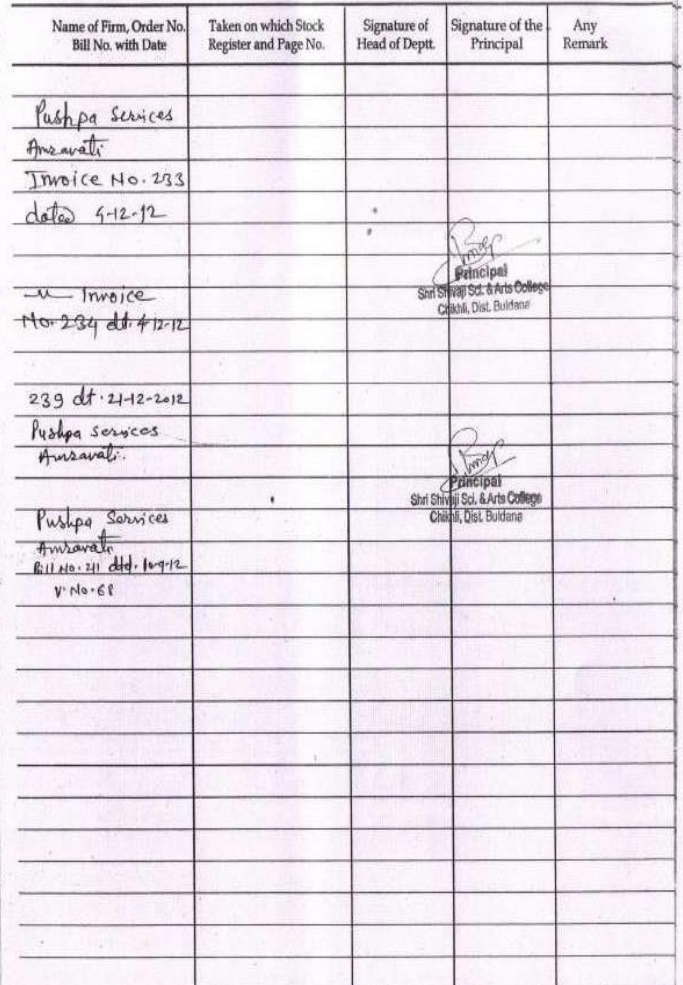 Name of Firm, Order No. Bill No. with Date
Taken on which Stock Register and Page No.
Signature of Head of Deptt.
Signature of the Principal
Any Remark
Pushpa Services
Amravati
Invoice No. 233
dated 4-12-12
Principal
Shri Shivaji Sci. & Arts College
Chikhli, Dist. Buldana
Invoice
No. 234 dt. 4-12-12
239 dt. 21-12-2012
Pushpa Services
Amravati.
Principal
Shri Shivaji Sci. & Arts College
Chikhli, Dist. Buldana
Pushpa Services
Amravati
Bill No. 211 dtd. 10-9-12
V. No. 68